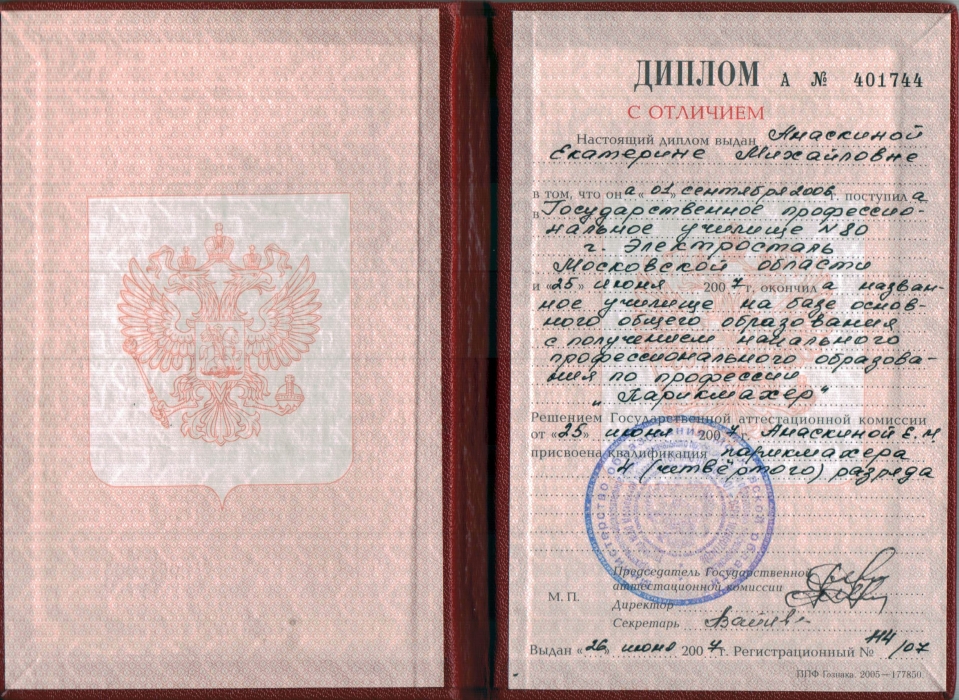 ДИПЛОМ А № 401744
С ОТЛИЧИЕМ
Настоящий диплом выдан Анаскиной
Екатерине Михайловне
в том, что он а «01» сентября 2006 г. поступил а
в Государственное професcио-
нальное училище N 80
г. Электросталь
Московской области
и «25» июня 2007 г. окончил а назван-
ное училище на базе основ-
ного общего образования
с получением начального
профессионального образова-
ния по профессии
„Парикмахер“
Решением Государственной аттестационной комиссии
от «25» июня 2007 г. Анаскиной Е. М
присвоена квалификация парикмахера
4 (четвёртого) разряда
Председатель Государственной
аттестационной комиссии
М. П.
Директор
Секретарь
Выдан «26» июня 2007 г. Регистрационный № /07
ППФ Гознака. 2005—177850.